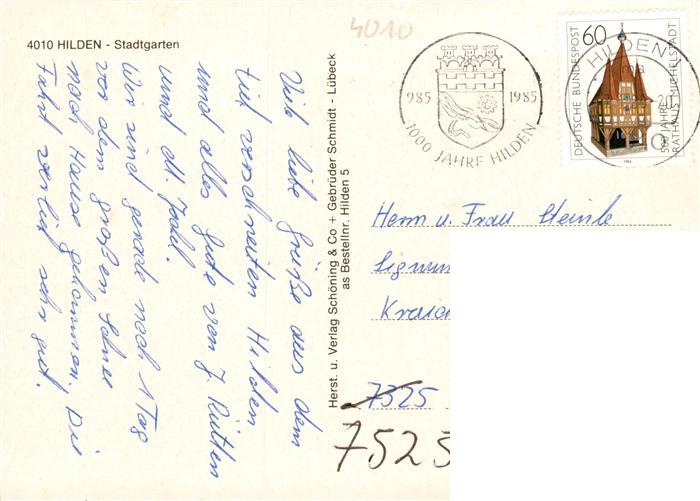 4010 HILDEN - Stadtgarten
4010
985 1985
1000 JAHRE HILDEN
60
DEUTSCHE BUNDESPOST
500 JAHRE
RATHAUS MICHELSTADT
HILDEN
Viele liebe Grüße aus dem
tief verschneiten Hilden
und alles Gute von J. Rütten
und
Wir sind gerade noch 1 Tag
vor dem großen Schnee
nach Hause gekommen. Die
Fahrt verlief sehr gut.
Herst. u. Verlag Schöning & Co + Gebrüder Schmidt - Lübeck
as Bestellnr. Hilden 5
Herrn u. Frau Steinle
Sigmun
Kraich
7325
7525